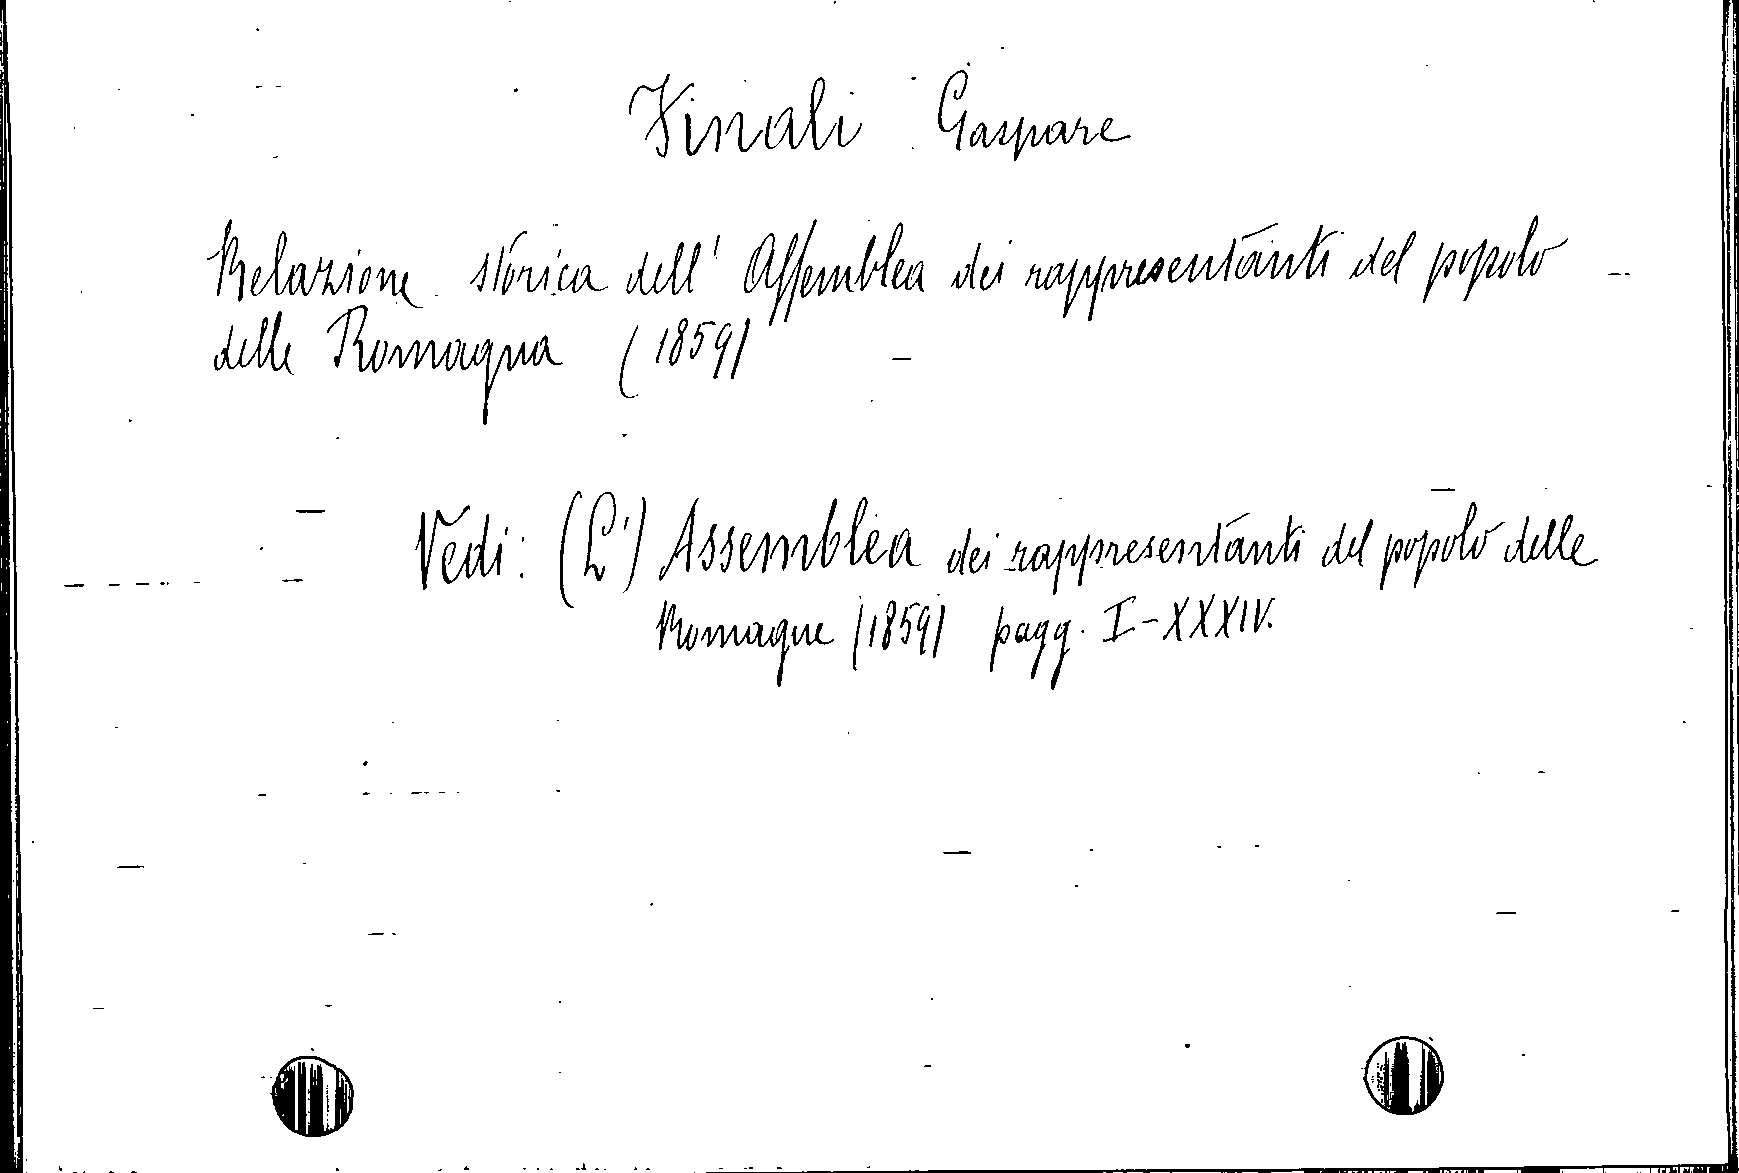 Finali Gaspare
Relazione storica dell' Assemblea dei rappresentanti del popolo
delle Romagna (1859)
Vedi: (L') Assemblea dei rappresentanti del popolo delle
Romagne (1859) pagg. I-XXXIV.